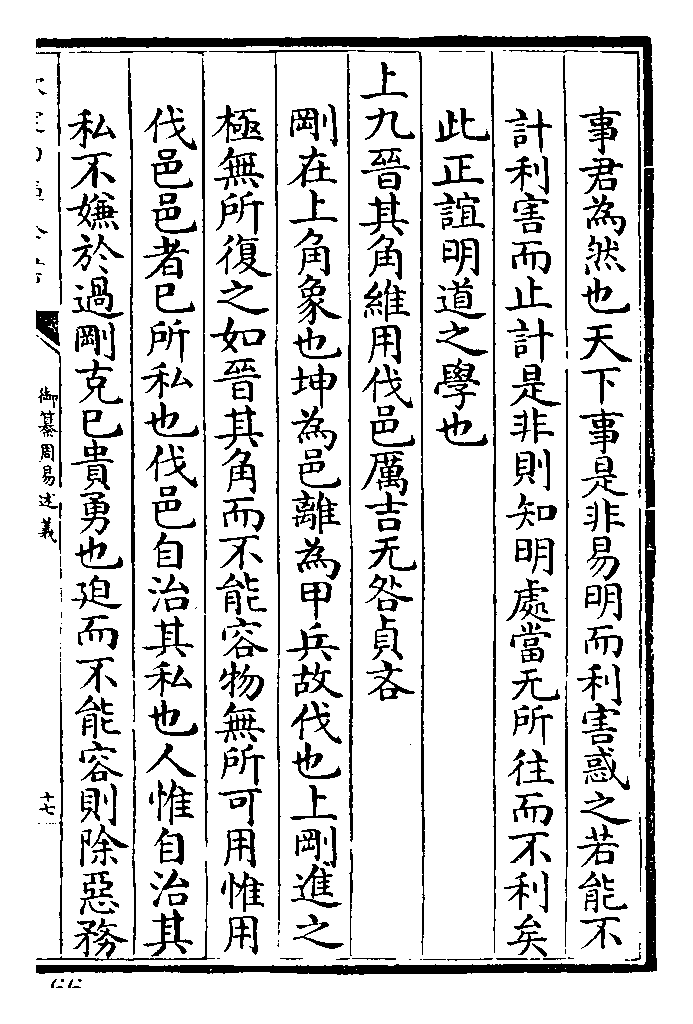 事君為然也天下事是非易明而利害惑之若能不
計利害而止計是非則知明處當无所往而不利矣
此正誼明道之學也
上九晉其角維用伐邑厲吉无咎貞吝
剛在上角象也坤為邑離為甲兵故伐也上剛進之
極無所復之如晉其角而不能容物無所可用惟用
伐邑邑者已所私也伐邑自治其私也人惟自治其
私不嫌於過剛克已貴勇也廹而不能容則除惡務
御纂周易述義
十七